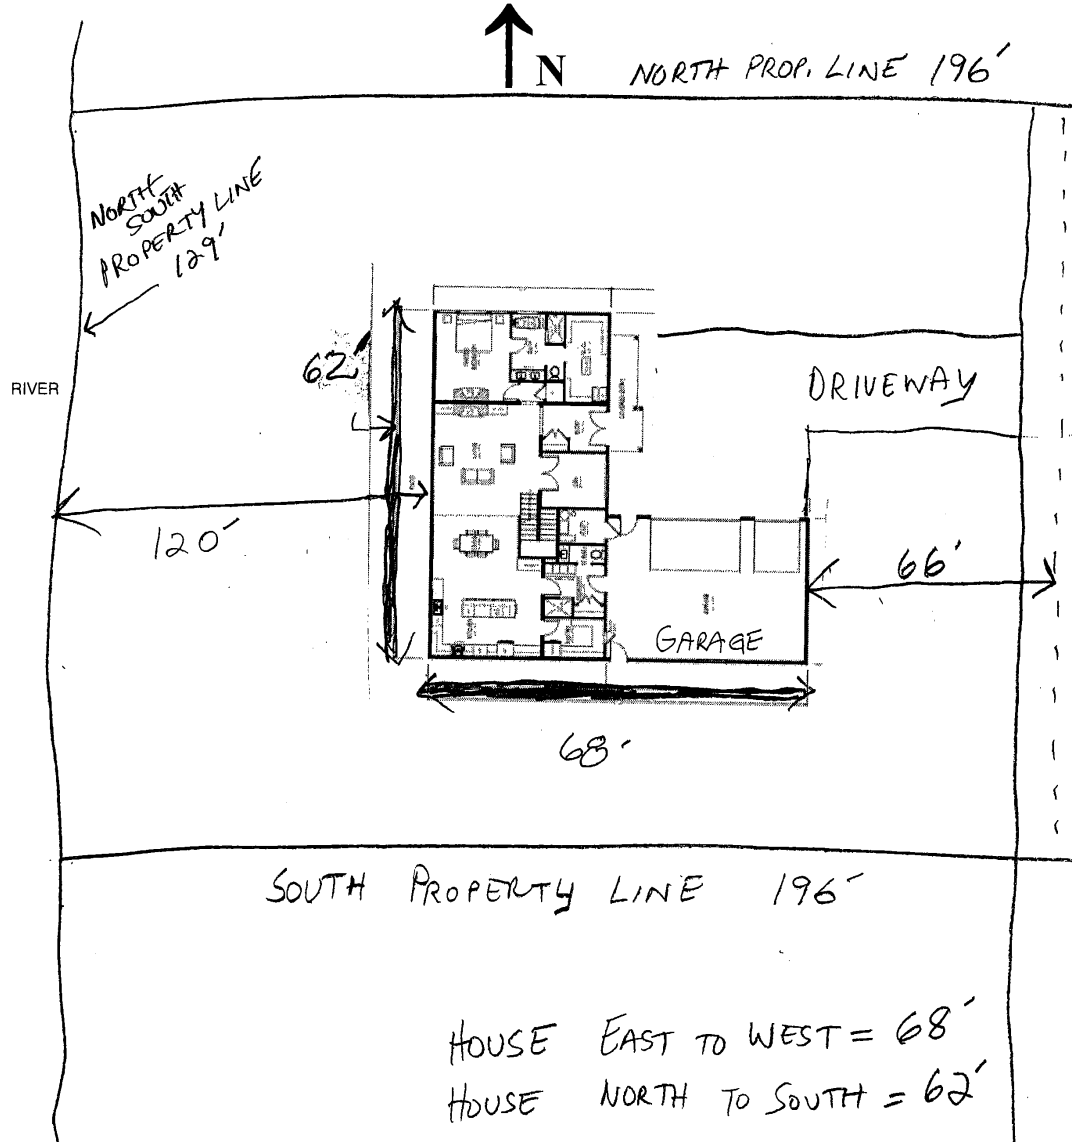 N
NORTH PROP. LINE 196'
NORTH
SOUTH
PROPERTY LINE
129'
62'
RIVER
DRIVEWAY
120'
66'
GARAGE
68'
SOUTH PROPERTY LINE 196'
HOUSE EAST TO WEST = 68'
HOUSE NORTH TO SOUTH = 62'